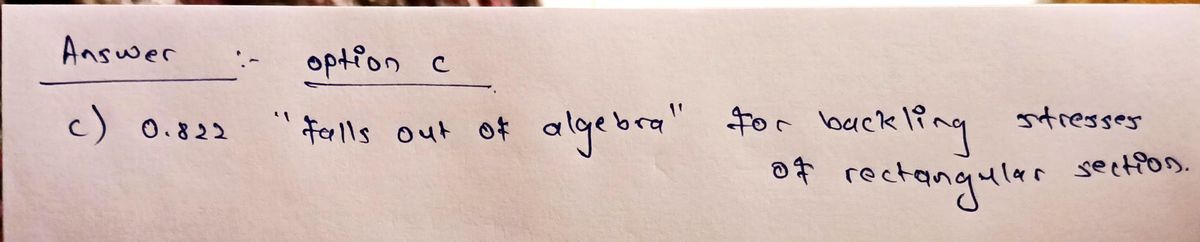 Answer :- option c
c) 0.822 "falls out of algebra" for backling stresses
of rectangular section.